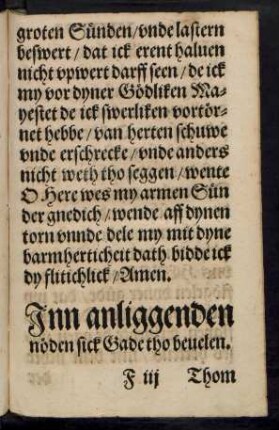 groten Sünden/vnde lastern
beswert/dat ick erent haluen
nicht vpwert darff seen/de ick
my vor dyner Gödliken Ma-
yestet de ick swerliken vortör-
net hebbe/van herten schuwe
vnde erschrecke/vnde anders
nicht weth tho seggen/wente
O Here wes my armen Sün
der gnedich/wende aff dynen
torn vnnde dele my mit dyne
barmherticheit dath bidde ick
dy flitichlick/Amen.
Inn anliggenden
nöden sick Gade tho beuelen.
F iij Thom